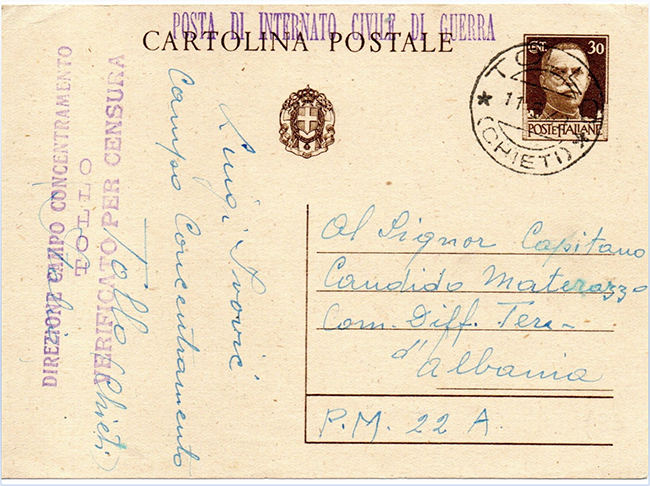 POSTA DI INTERNATO CIVILE DI GUERRA
CARTOLINA POSTALE
CENT. 30
POSTE ITALIANE
TOLLO
11.
(CHIETI)
Al Signor Capitano
Candido Materazzo
Com. Diff. Terr.
d'Albania
P.M. 22 A
Luigi
Campo Concentramento
Tollo (Chieti)
DIREZIONE CAMPO CONCENTRAMENTO
TOLLO
VERIFICATO PER CENSURA